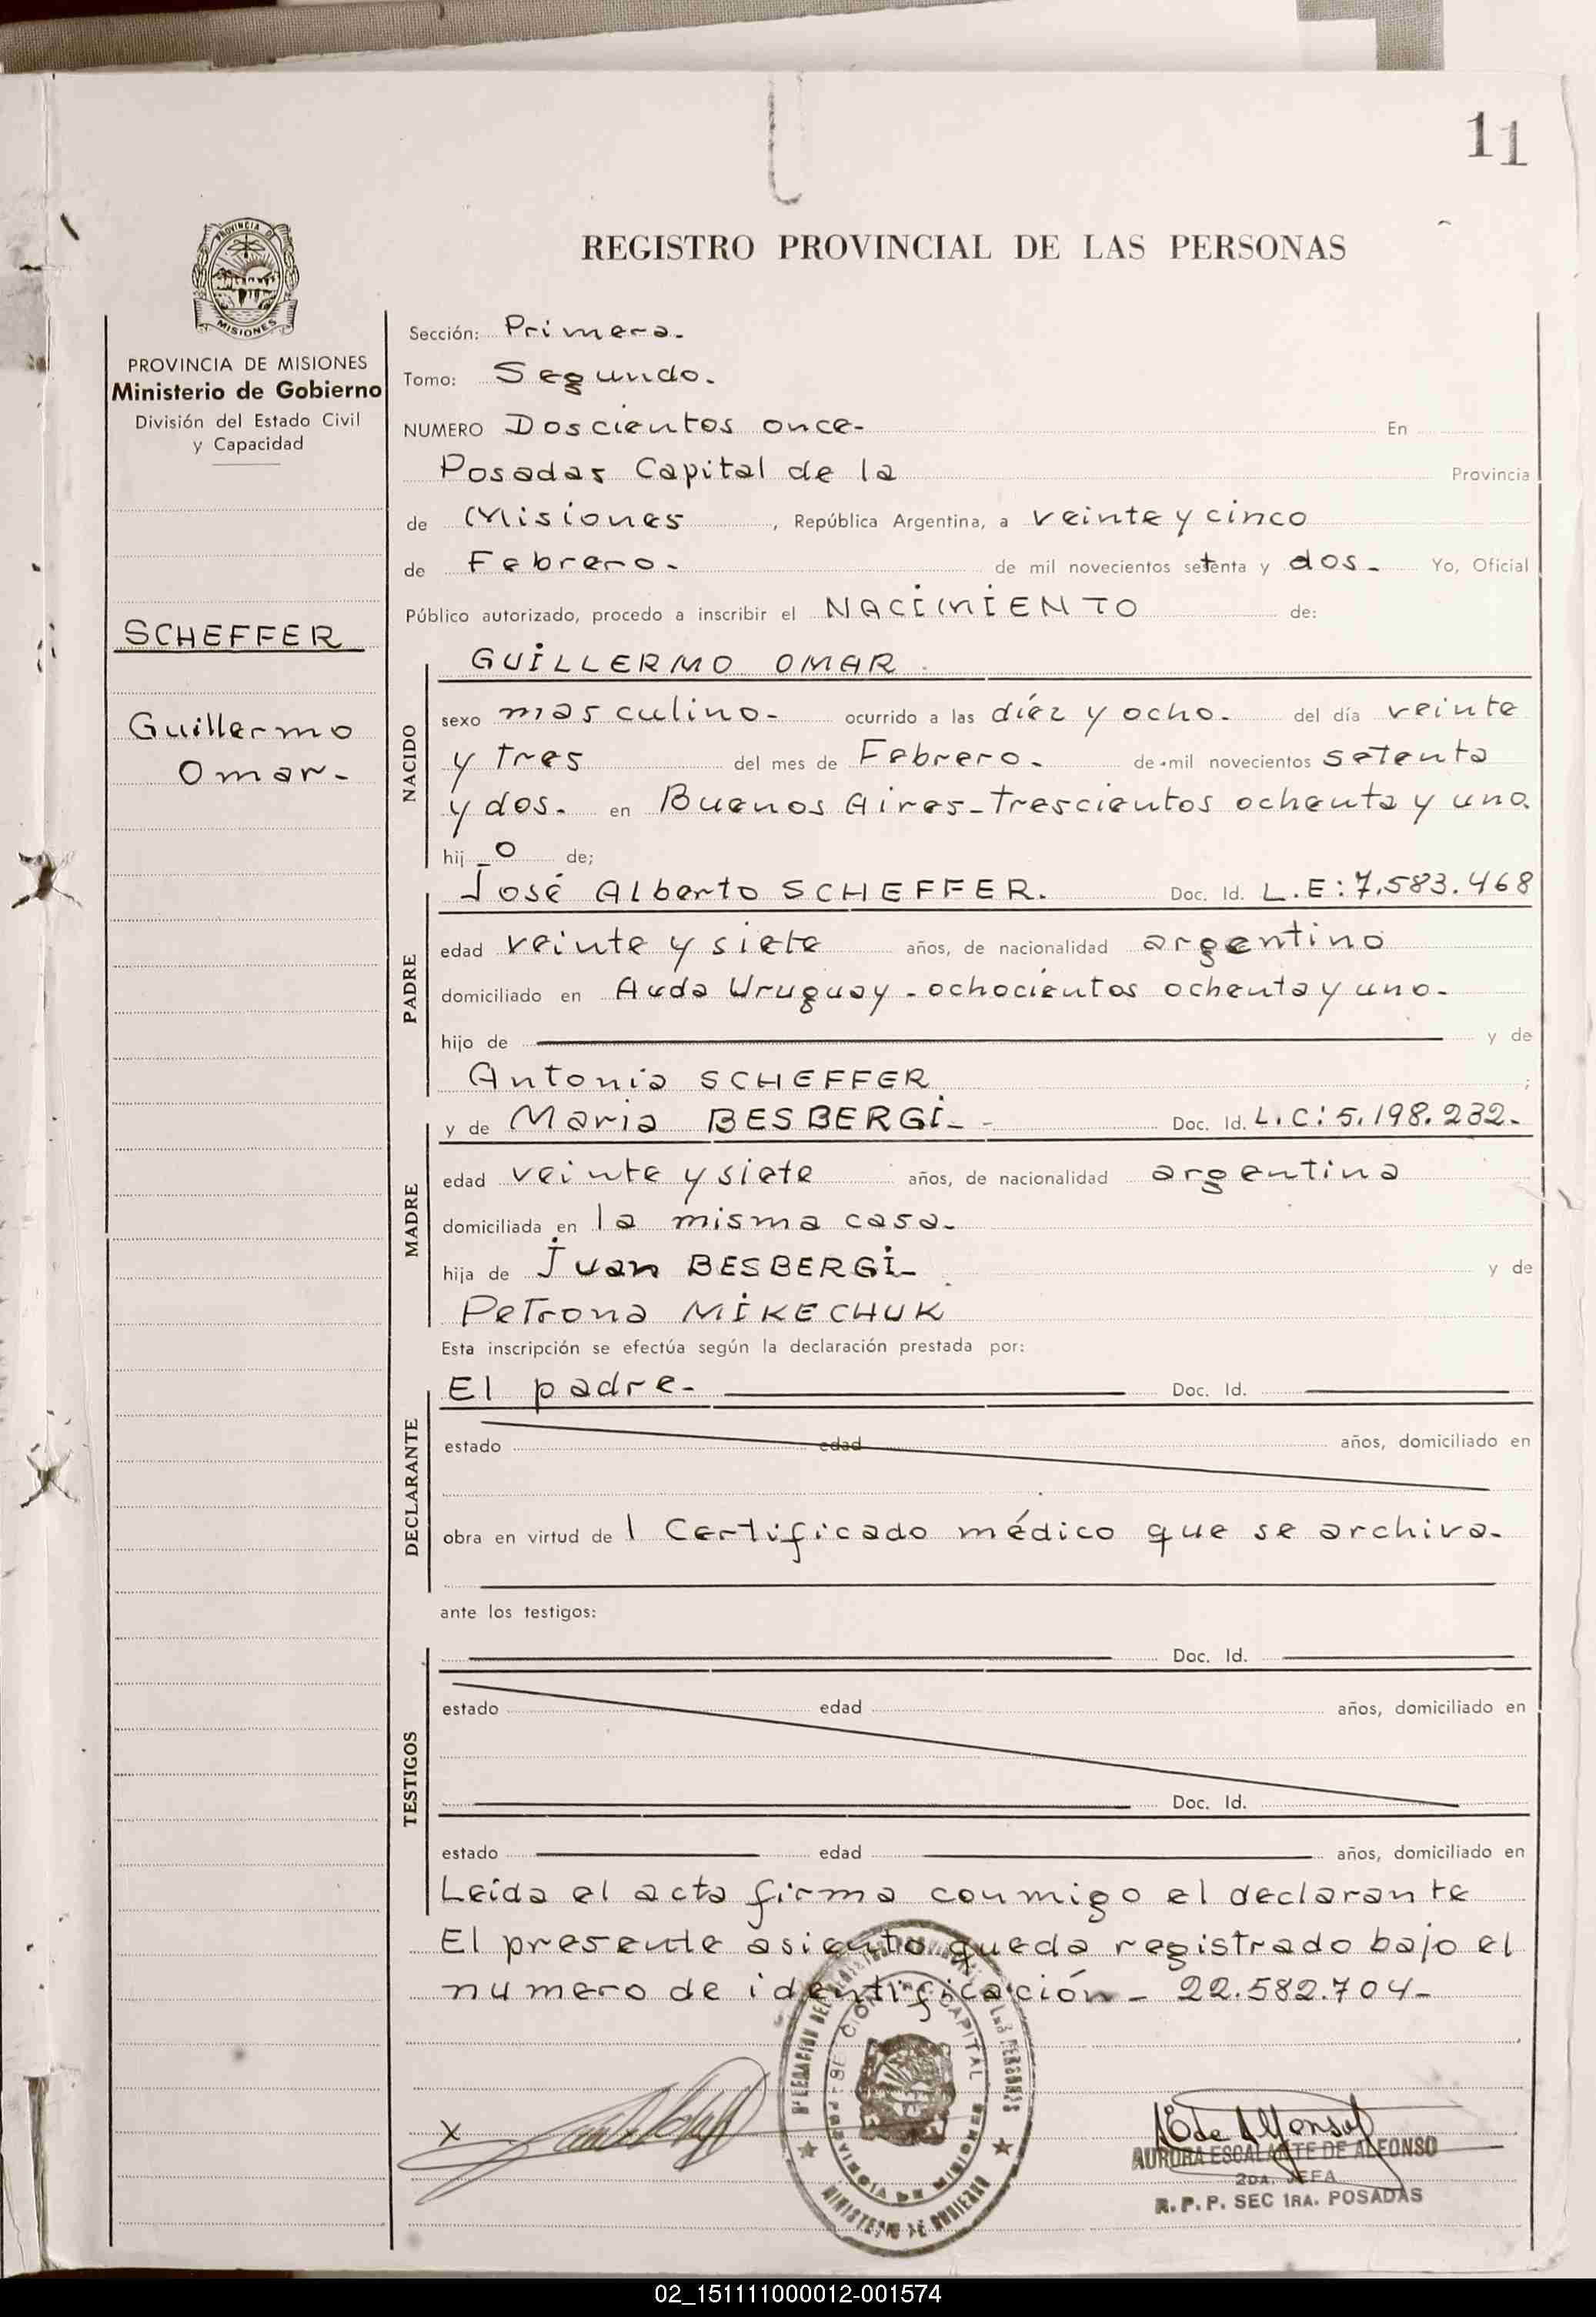 11
PROVINCIA DE
MISIONES
PROVINCIA DE MISIONES
Ministerio de Gobierno
División del Estado Civil
y Capacidad
SCHEFFER
Guillermo
Omar-
REGISTRO PROVINCIAL DE LAS PERSONAS
Sección: Primera-
Tomo: Segundo.
NUMERO Doscientos once- En
Posadas Capital de la Provincia
de Misiones, República Argentina, a veinte y cinco
de Febrero.- de mil novecientos setenta y dos- Yo, Oficial
Público autorizado, procedo a inscribir el NACIMIENTO de:
NACIDO
GUILLERMO OMAR.
sexo masculino- ocurrido a las diéz y ocho. del día veinte
y tres del mes de Febrero. de mil novecientos setenta
y dos. en Buenos Aires-trescientos ochenta y uno.
hijo de;
PADRE
José Alberto SCHEFFER. Doc. Id. L.E:7.583.468
edad veinte y siete años, de nacionalidad argentino
domiciliado en Avda Uruguay-ochocientos ochenta y uno-
hijo de y de
Antonia SCHEFFER ;
MADRE
y de Maria BESBERGI-- Doc. Id. L.C:5.198.232-
edad veinte y siete años, de nacionalidad argentina
domiciliada en la misma casa-
hija de Juan BESBERGI- y de
Petrona MIKECHUK
Esta inscripción se efectúa según la declaración prestada por:
DECLARANTE
El padre- Doc. Id.
estado edad años, domiciliado en
obra en virtud de 1 Certificado médico que se archiva-
ante los testigos:
TESTIGOS
Doc. Id.
estado edad años, domiciliado en
Doc. Id.
estado edad años, domiciliado en
Leida el acta firma conmigo el declarante
El presente asiento queda registrado bajo el
numero de identificación- 22.582.704-
X
SECCION CAPITAL
PROVINCIA DE MISIONES
MINISTERIO DE GOBIERNO
E de Alfonso
AURORA ESCALANTE DE ALFONSO
2DA. JEFA
R.P.P. SEC 1RA. POSADAS
02_151111000012-001574